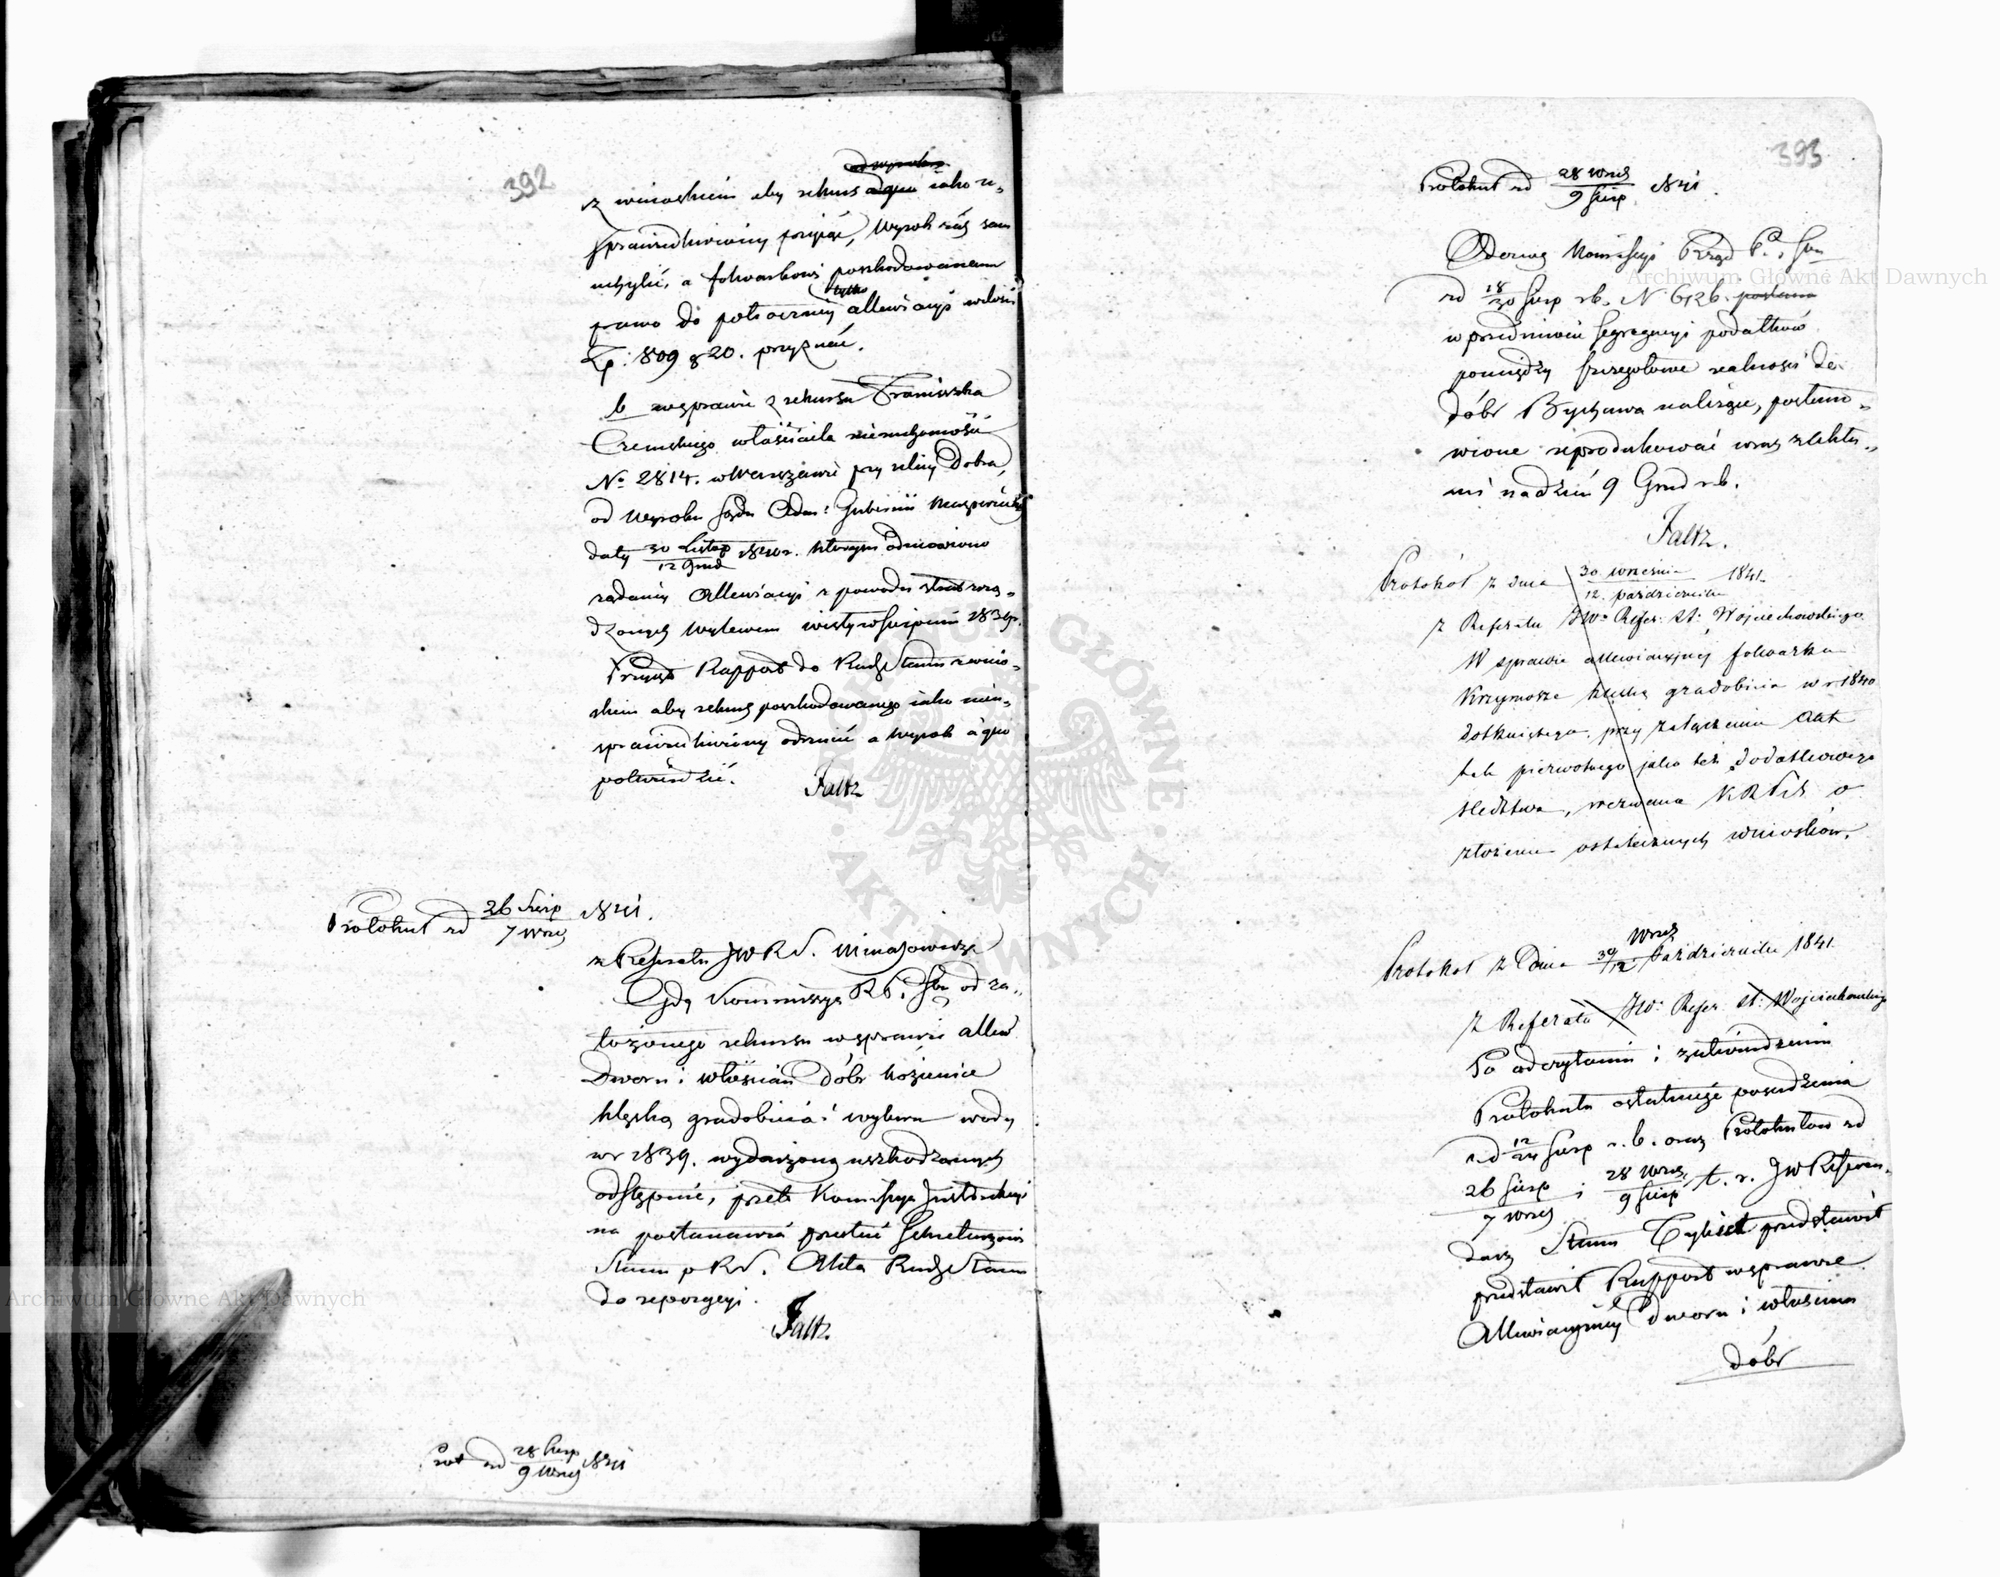 392
z wnioskiem aby rekurs a quo jako u-
sprawiedliwiony przyjąć, Wyrok zaś sam
uchylić, a folwarkowi poszkodowanemu
tylko
prawo do półrocznéj allewiacyi w ilości
Zp: 809 g 20. przyznać.
b w sprawie z rekursu Franciszka
właściciela nieruchomości
No 2814. w Warszawie przy ulicy Dobra,
od Wyroku Sądu Adm: Gubernii Mazowieckiéj
daty 30 Listop / 12 Grud 1840 r. którym odmówiono
żądaniu Allewiacyi z powodu strat zrzą-
dzonych wylewem Wisły w Sierpniu 1839 r.
Przyjęto Rapport do Rady Stanu z wnio-
skiem aby rekurs poszkodowanego jako nieu-
sprawiedliwiony odrzucić a Wyrok a quo
potwierdzić.
Faltz
Protokuł od 26 Sierp / 7 Wrześ 1841.
z Referatu JW R S.
Gdy Kommissya R P. i Sk. od za-
łożonego rekursu w sprawie allew
Dworu i włościan Dóbr Kozienice
klęską gradobicia i wylewu wody
w r 1839. wydarzoną uszkodzonych
odstępuie, przeto Komissya Instrukcyi
na postanawia przesłać Sekretarzowi
Stanu p R S. Akta Rady Stanu
do repozycyi.
Faltz.
Prot od 28 Sierp / 9 Wrześ 1841
393
Protokuł od 28 Wrześ / 9 Sierp 1841.
Odezwę Komissyi Rząd P. i Sk
od 18/30 Sierp rb. N 6126.
w przedmiocie segregacyi podatków
pomiędzy szczegółowe realności do
dóbr Bychawa należące, postano-
wiono reprodukować wraz z akta-
mi na dzień 9 Grud r.b.
Faltz.
Protokół z dnia 30 września / 12. października 1841.
z Referatu JWo Refer: St: Wojciechowskiego
W sprawie allewiacyjnéj folwarku
Krzymosze klęską gradobicia w r. 1840
dotkniętego, przy załączeniu Akt
tak pierwotnego jako też dodatkowego
śledztwa, wezwana KRPiS o
złożenie ostatecznych wniosków.
Wrześ
Protokół z Dnia 30/12 Października 1841.
z Referatu JWo Refer. St: Wojciechowskiego
Po odczytaniu i zatwierdzeniu
Protokułu ostatniego posiedzenia
od 12/24 Sierp r.b. oraz Protokułów od
26 Sierp / 7 Wrześ i 28 Wrześ / 9 Sierp t. r. JW Referen-
darz Stanu przedstawił
przedstawił Rapport w sprawie
Allewiacyjnéj Dworu i włościan
dóbr
Archiwum Główne Akt Dawnych
Archiwum Główne Akt Dawnych
ARCHIWUM GŁÓWNE AKT DAWNYCH